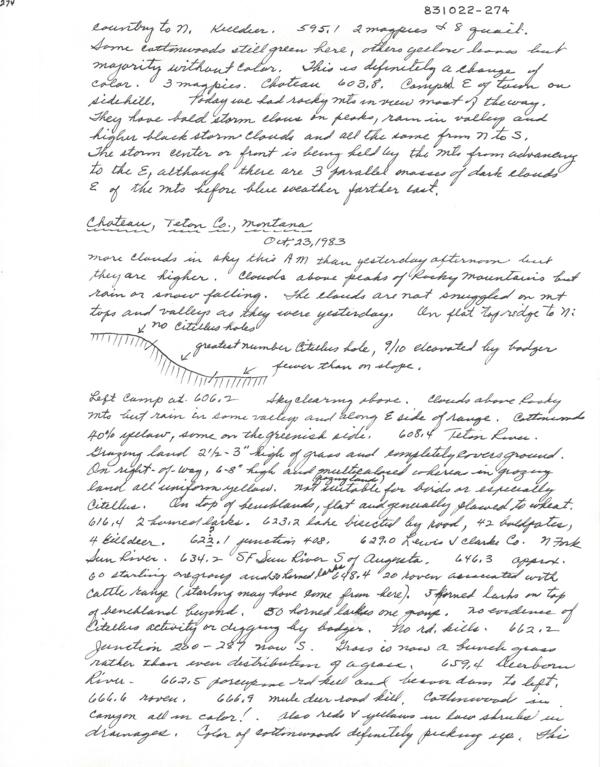 274
831022-274
country to N. Killdeer. 595.1 2 magpies & 8 quail.
Some cottonwoods still green here, others yellow leaves but
majority without color. This is definitely a change of
color. 3 magpies. Choteau 603.8. Camped E of town on
sidehill. Today we had rocky mts in view most of the way.
They have bold storm clouds on peaks, rain in valley and
higher black storm clouds and all the same from N to S.
The storm center or front is being held by the mts from advancing
to the E, although there are 3 parallel masses of dark clouds
E of the mts before blue weather farther east.
Choteau, Teton Co., Montana
Oct 23, 1983
more clouds in sky this AM than yesterday afternoon but
they are higher. Clouds above peaks of Rocky Mountains but
rain or snow falling. The clouds are not snuggled on mt
tops and valleys as they were yesterday. On flat top ridge to N:
no Citellus holes
greatest number Citellus hole, 9/10 excavated by badger
fewer than on slope.
Left Camp at 606.2 Sky clearing above. Clouds above Rocky
mts but rain in some valleys and along E side of range. Cottonwoods
40% yellow, some on the greenish side. 608.4 Teton River.
Grazing land 2 1/2-3" high of grass and completely covers ground.
On right-of-way, 6-8" high and multicolored whereas in grazing
land all uniform yellow. not (grazing land) suitable for birds or especially
Citellus. On top of benchlands, flat and generally plowed to wheat.
616.4 2 horned larks. 623.2 lake bisected by road, 42 baldpates,
4 killdeer. 622.1 ? junction 408. 629.0 Lewis & Clarke Co. N Fork
Sun River. 634.2 SF Sun River S of Augusta. 646.3 approx.
60 starling one group and 30 horned larks 648.4 20 raven associated with
cattle range (starling may have come from here). 5 horned larks on top
of benchland beyond. 50 horned larks one group. no evidence of
Citellus activity or digging by badger. No rd. kills. 662.2
Junction 200-287 now S. Grass is now a bunch grass
rather than even distribution of a grass. 659.4 Dearborn
River. 662.5 porcupine rd kill and beaver dam to left.
666.6 raven. 666.9 mule deer road kill. Cottonwood in
canyon all in color! Also reds & yellows in low shrubs in
drainages. Color of cottonwoods definitely picking up. This